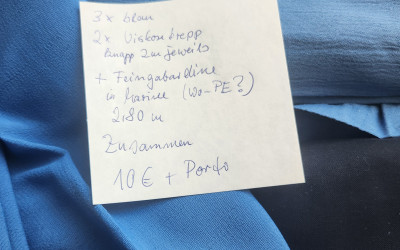 3 x blau
2x Viskosekrepp
knapp 2m jeweils
+ Feingabardine
in Marine (Wo-PE?)
2,80 m
Zusammen
10€ + Porto